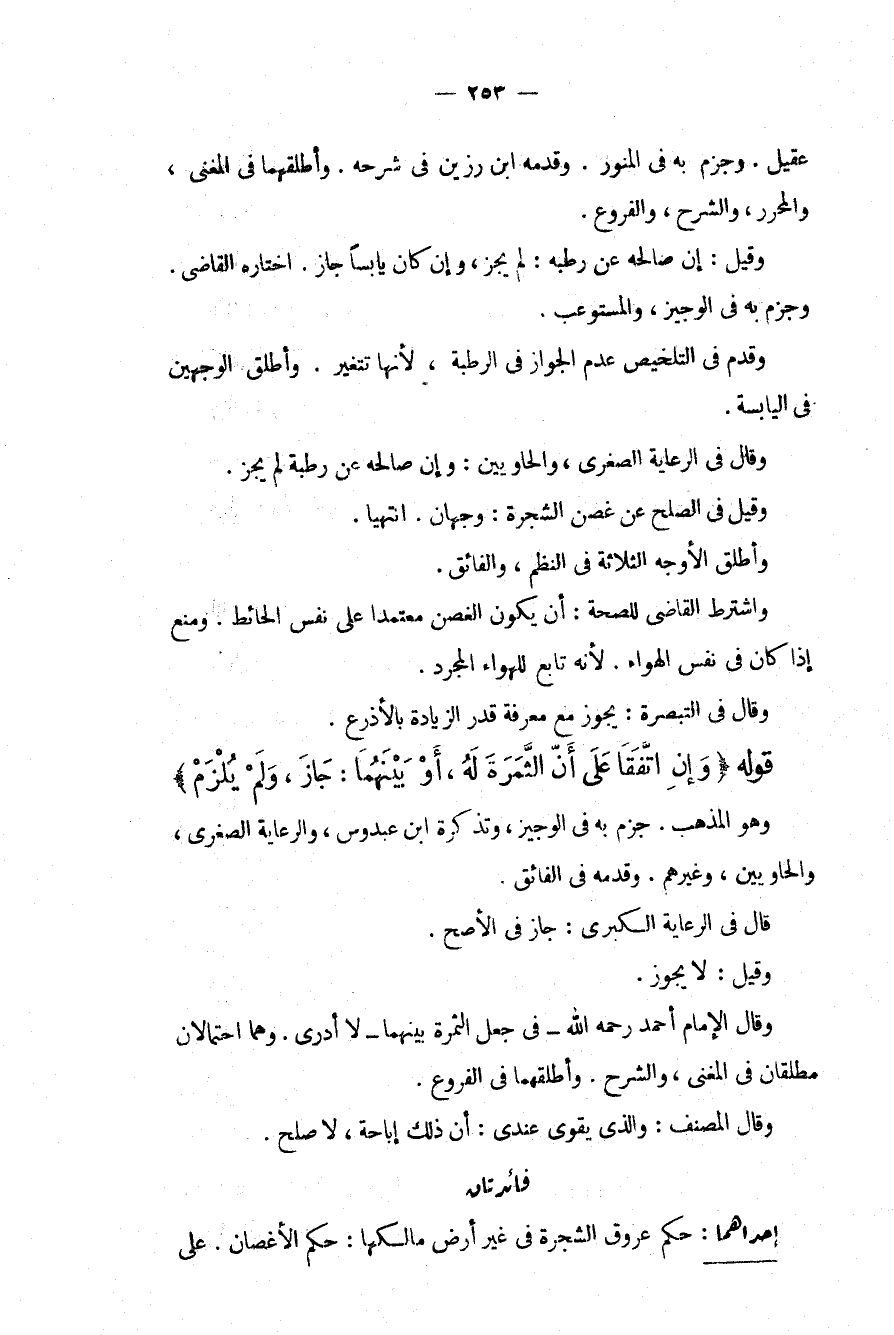 — ٢٥٣ —
عقيل . وجزم به فى المنور . وقدمه ابن رزين فى شرحه . وأطلقهما فى المغنى ،
والمحرر ، والشرح ، والفروع .
وقيل : إن صالحه عن رطبه : لم يجز ، وإن كان يابساً جاز . اختاره القاضى .
وجزم به فى الوجيز ، والمستوعب .
وقدم فى التلخيص عدم الجواز فى الرطبة ، لأنها تتغير . وأطلق الوجهين
فى اليابسة .
وقال فى الرعاية الصغرى ، والحاويين : وإن صالحه عن رطبة لم يجز .
وقيل فى الصلح عن غصن الشجرة : وجهان . انتهيا .
وأطلق الأوجه الثلاثة فى النظم ، والفائق .
واشترط القاضى للصحة : أن يكون الغصن معتمدا على نفس الحائط . ومنع
إذا كان فى نفس الهواء . لأنه تابع للهواء المجرد .
وقال فى التبصرة : يجوز مع معرفة قدر الزيادة بالأذرع .
قوله ﴿ وَإِنِ اتَّفَقَا عَلَى أَنَّ الثَّمَرَةَ لَهُ ، أَوْ بَيْنَهُمَا : جَازَ ، وَلَمْ يُلْزَمْ ﴾
وهو المذهب . جزم به فى الوجيز ، وتذكرة ابن عبدوس ، والرعاية الصغرى ،
والحاويين ، وغيرهم . وقدمه فى الفائق .
قال فى الرعاية الكبرى : جاز فى الأصح .
وقيل : لا يجوز .
وقال الإمام أحمد رحمه الله ــ فى جعل الثمرة بينهما ــ لا أدرى . وهما احتمالان
مطلقان فى المغنى ، والشرح . وأطلقهما فى الفروع .
وقال المصنف : والذى يقوى عندى : أن ذلك إباحة ، لا صلح .
فائدتان
إحداهما : حكم عروق الشجرة فى غير أرض مالكها : حكم الأغصان . على